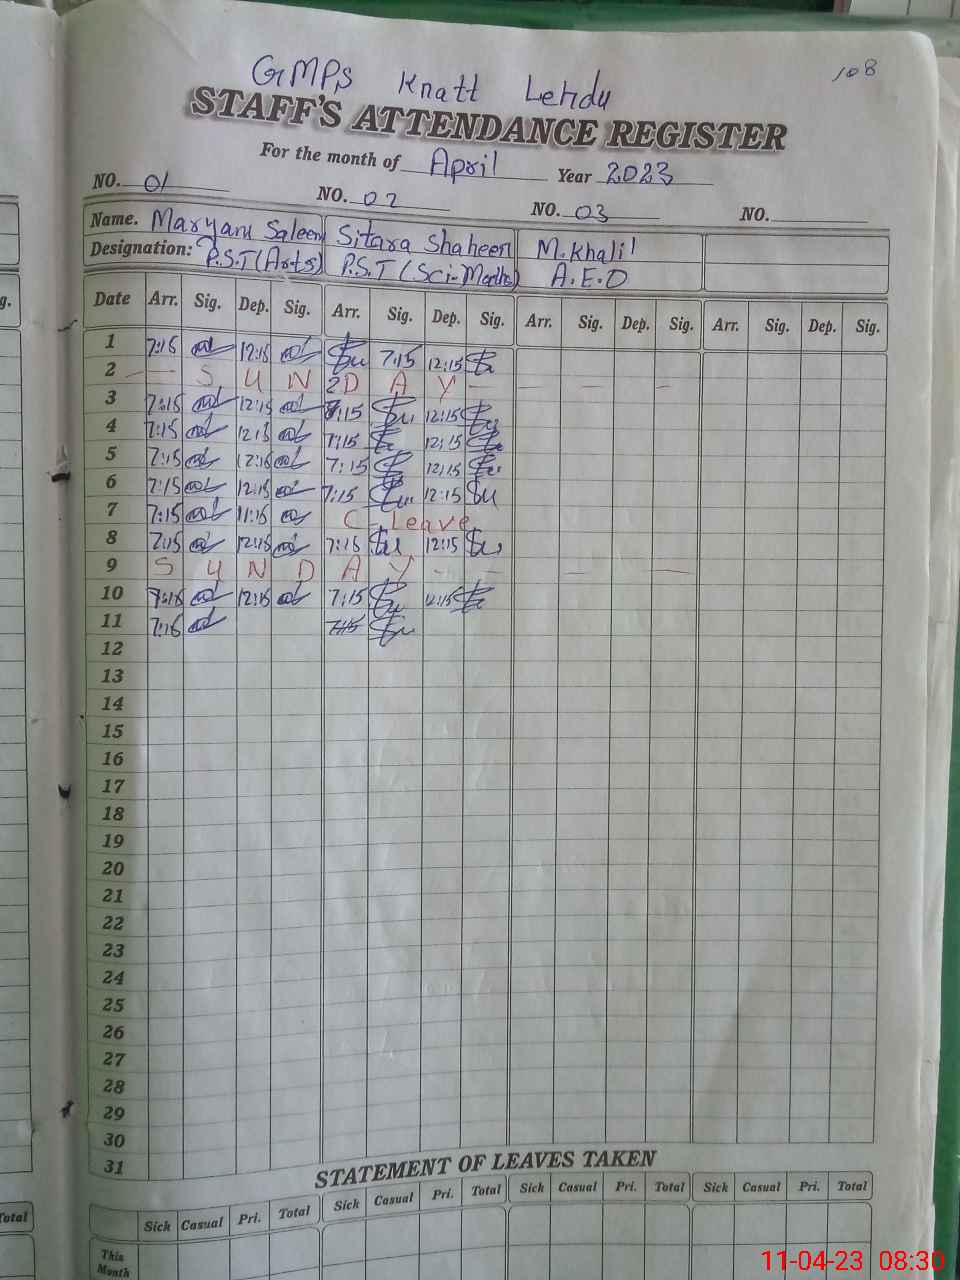 108
GMPS Knatt Lehdu
STAFF'S ATTENDANCE REGISTER
For the month of April Year 2023
NO. 01 NO. 02 NO. 03 NO.
Name. Maryam Saleem Sitara Shaheen M.Khalil
Designation: P.S.T (Arts) P.S.T (Sci-Maths) A.E.O
Date Arr. Sig. Dep. Sig. Arr. Sig. Dep. Sig. Arr. Sig. Dep. Sig. Arr. Sig. Dep. Sig.
1 7:15 12:15 7:15 12:15
2 S U N D A Y
3 7:15 12:15 7:15 12:15
4 7:15 12:15 7:15 12:15
5 7:15 12:15 7:15 12:15
6 7:15 12:15 7:15 12:15
7 7:15 11:15 C-Leave
8 7:15 12:15 7:15 12:15
9 S U N D A Y
10 7:15 12:15 7:15 12:15
11 7:15 7:15
12
13
14
15
16
17
18
19
20
21
22
23
24
25
26
27
28
29
30
31
STATEMENT OF LEAVES TAKEN
Sick Casual Pri. Total Sick Casual Pri. Total Sick Casual Pri. Total Sick Casual Pri. Total
This
Month
g.
Total
11-04-23 08:30